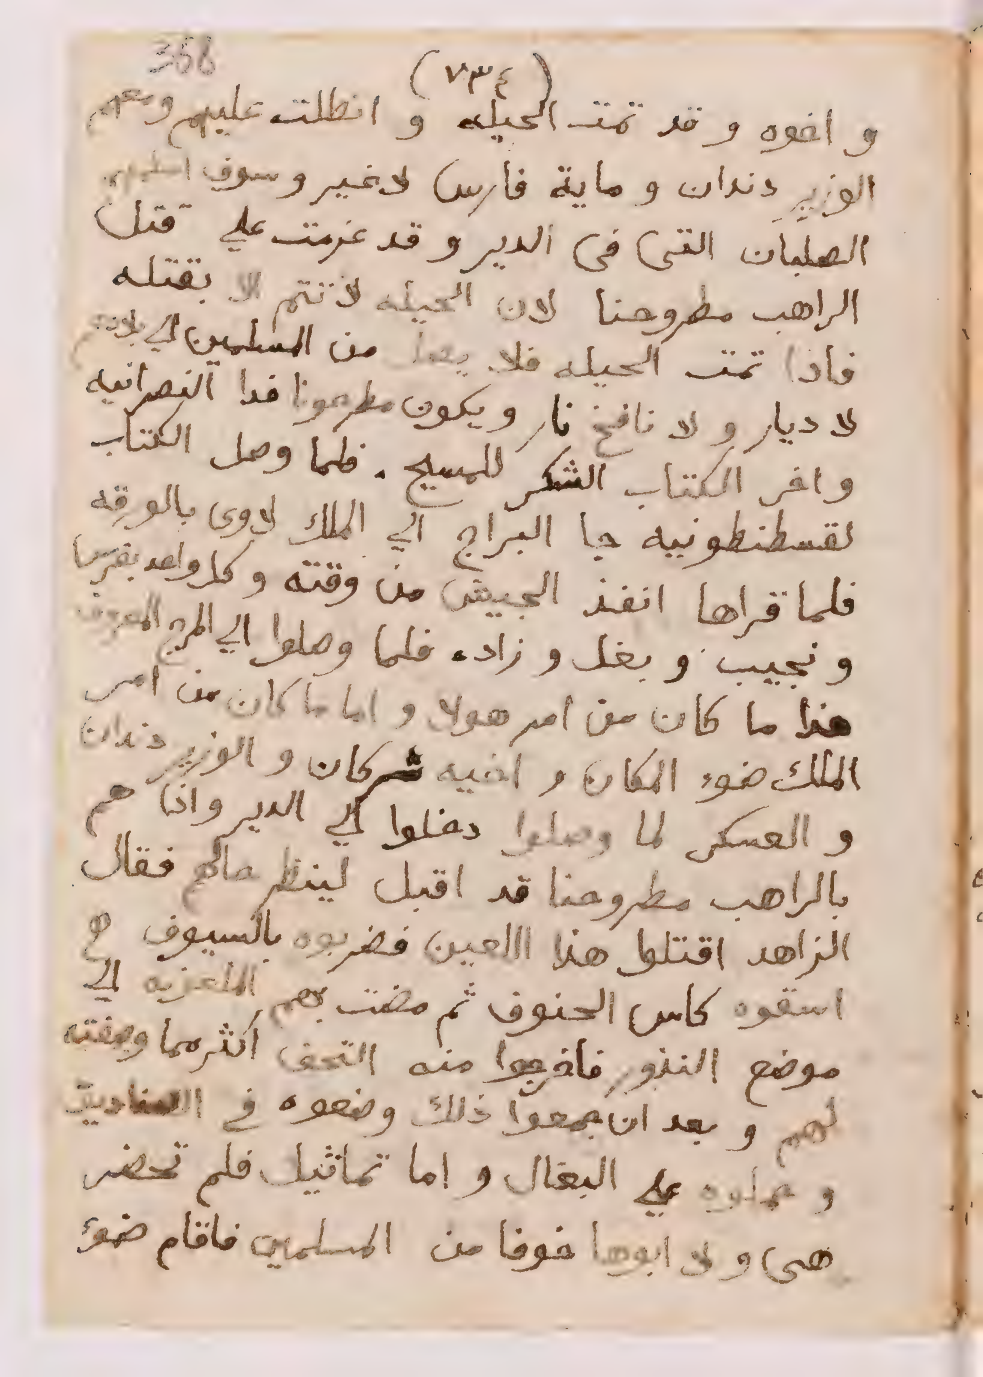 368
(٧٣٤)
و اخوه و قد تمت الحيله و انطلت عليهم ومعهم
الوزير دندان و ماية فارس لا غير و سوف اسلمهم
الصلبان التى فى الدير و قد عزمت علي قتل
الراهب مطروحنا لان الحيله لا تتم الا بقتله
فاذا تمت الحيله فلا يصل من المسلمين الي بلادهم
لا ديار و لا نافخ نار و يكون مطرحونا فدا النصرانيه
و اخر الكتاب الشكر للمسيح . فلما وصل الكتاب
لقسطنطونيه جا البراج الي الملك لاوى بالورقه
فلما قراها انفذ الجيش من وقته و كل واحد بفرس
و نجيب و بغل و زاده فلما وصلوا الي المرج المعروف
هذا ما كان من امر هولا و اما ما كان من امر
الملك ضوء المكان و اخيه شركان و الوزير دندان
و العسكر لما وصلوا دخلوا الي الدير واذا هم
بالراهب مطروحنا قد اقبل لينظر حالهم فقال
الزاهد اقتلوا هذا اللعين فضربوه بالسيوف
اسقوه كاس الحتوف ثم مضت بهم الي
موضع النذور فاخرجوا منه التحف اكثر مما وصفته
لهم و بعد ان جمعوا ذلك وضعوه في الصناديق
و حملوه علي البغال و اما تماثيل فلم تحضر
هى و لا ابوها خوفا من المسلمين فاقام ضوء